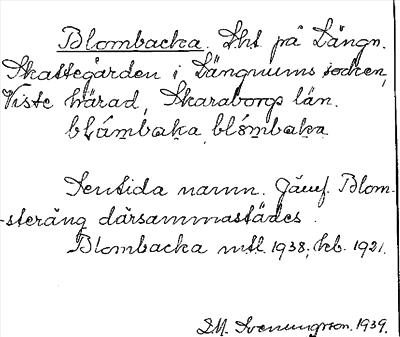 Blombacka. Lht på Längn.
Skattegården i Längnums socken,
Viste härad, Skaraborgs län.
blåmbaka, blómbaka
Sentida namn. Jämf. Blom-
-steräng därsammastädes.
Blombacka mtl. 1938; kb. 1921.
Svenungsson. 1939.